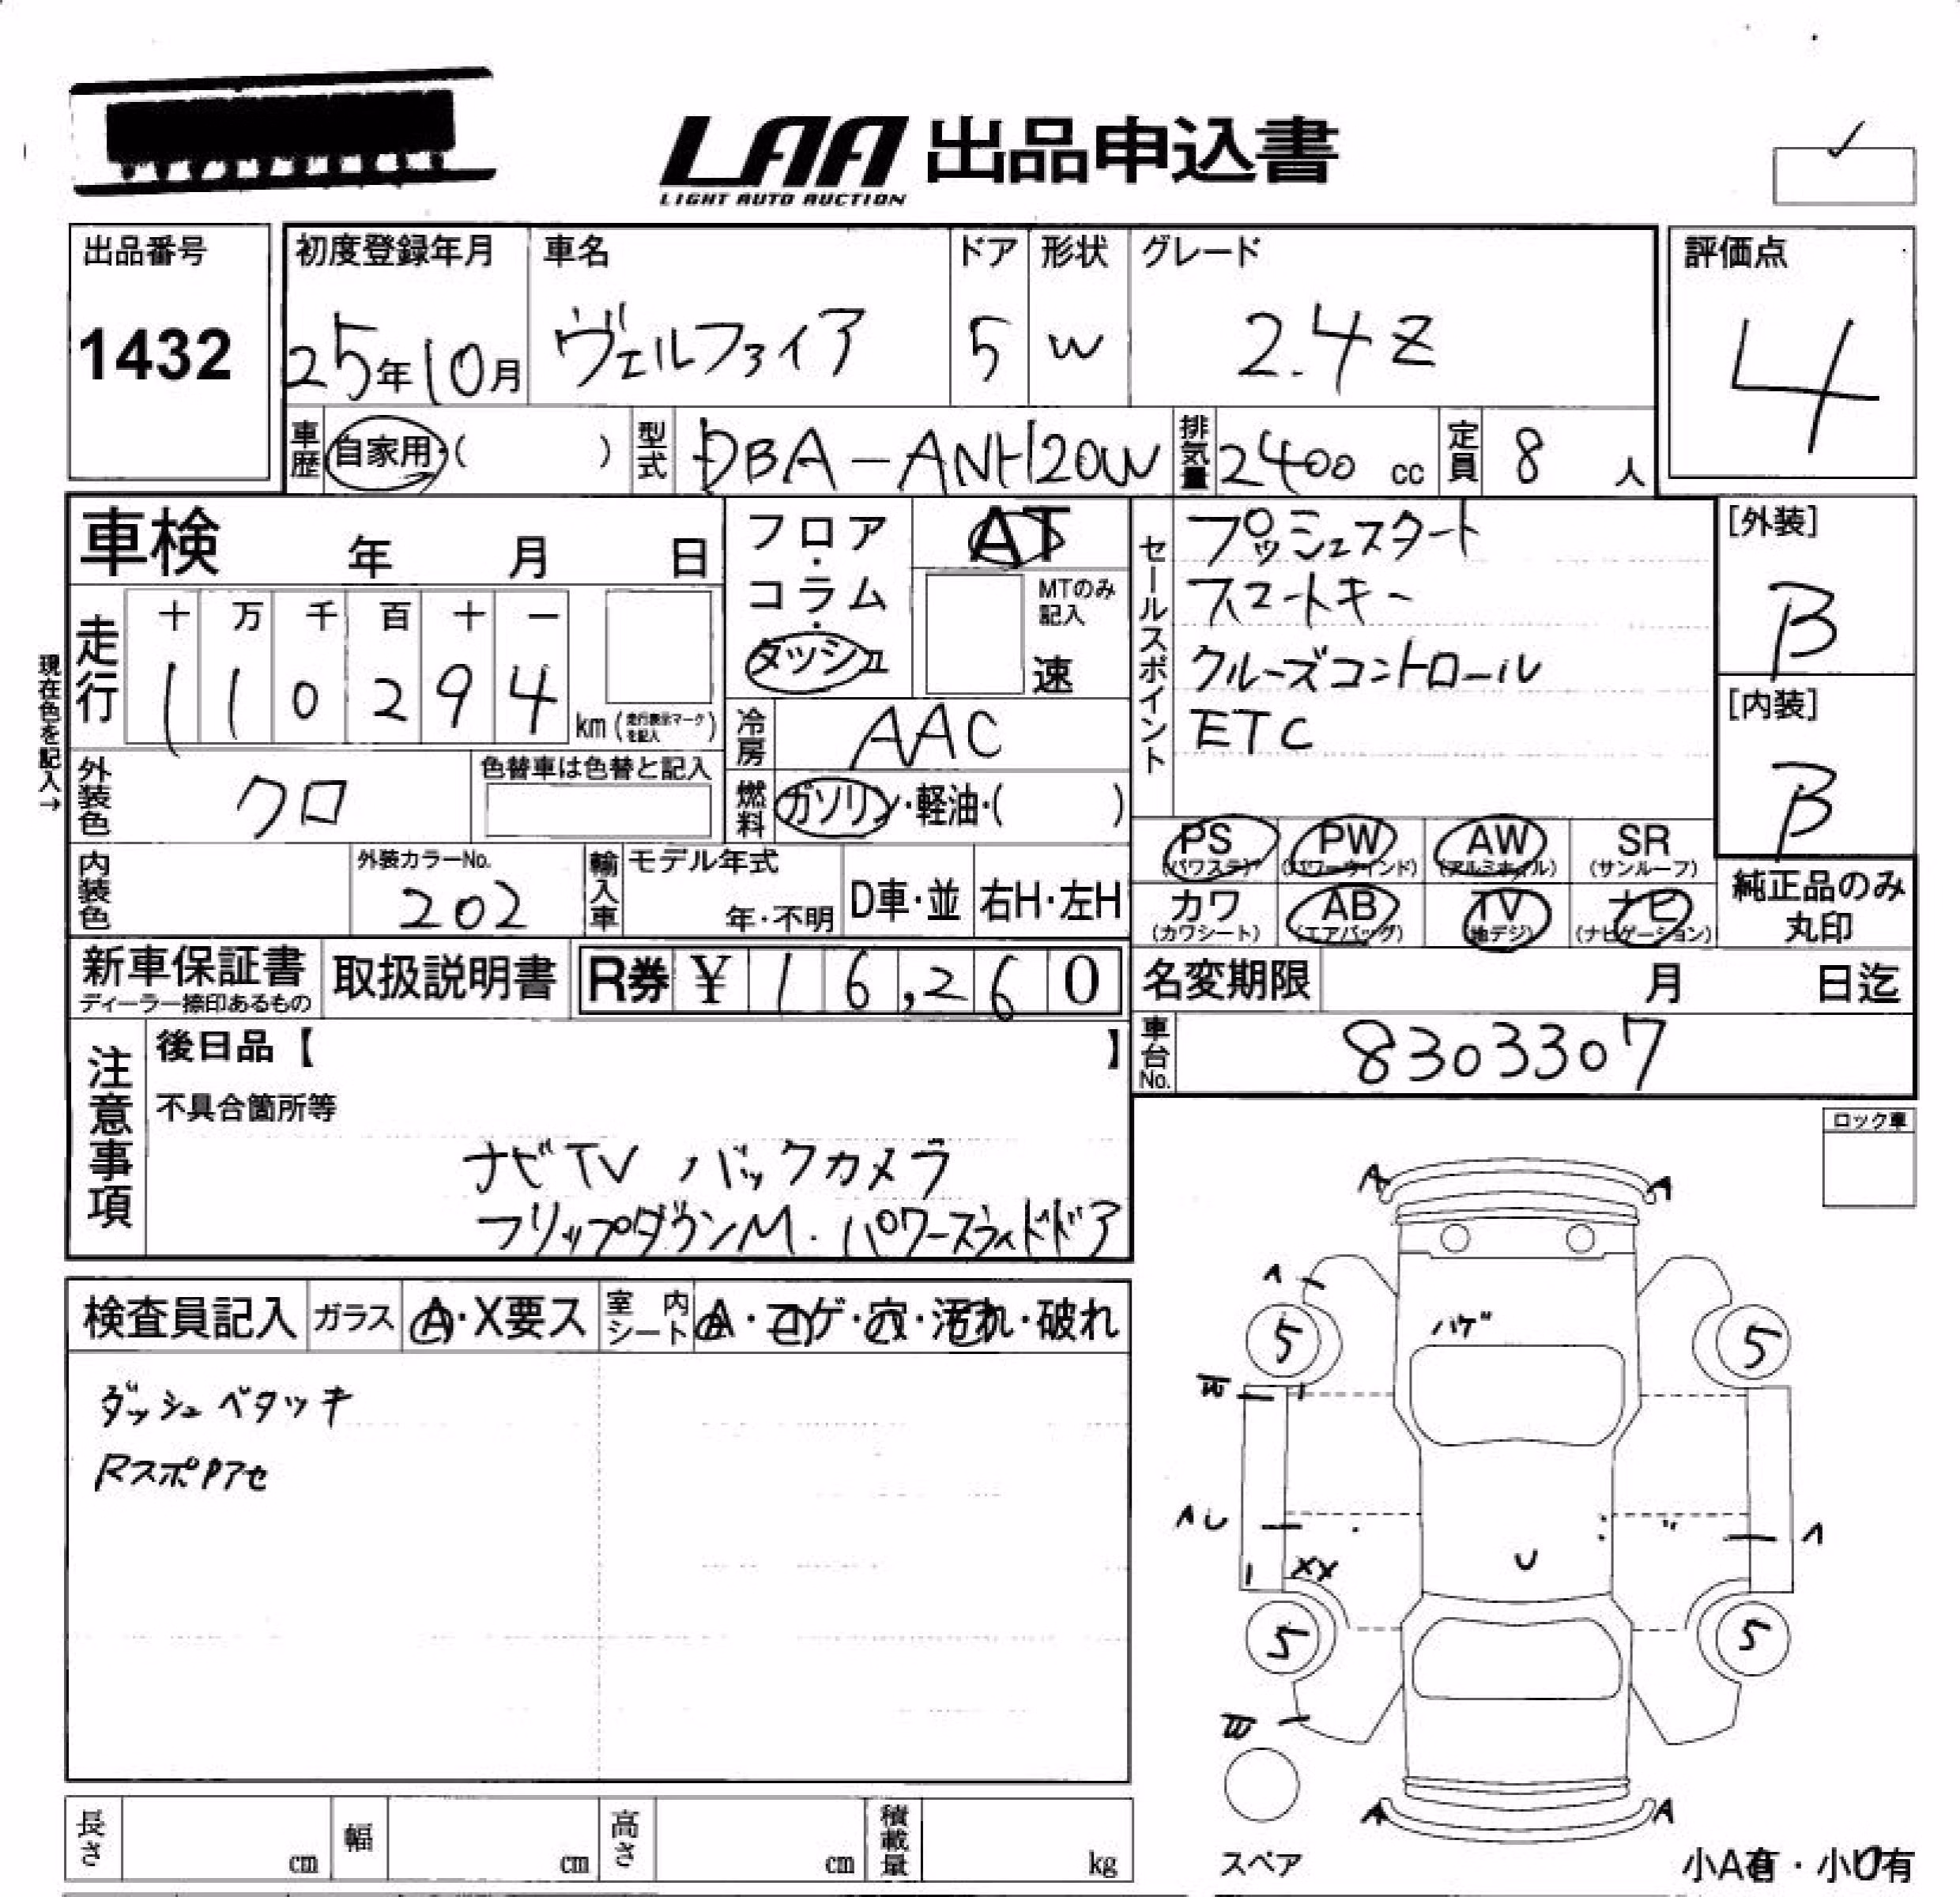 LAA 出品申込書
LIGHT AUTO AUCTION
出品番号
1432
初度登録年月
25年10月
車名
ヴェルファイア
ドア
5
形状
W
グレード
2.4Z
評価点
4
車歴 自家用・( )
型式 DBA-ANH20W
排気量 2400 cc
定員 8 人
車検 年 月 日
フロア・コラム・ダッシュ
AT
MTのみ記入
速
セールスポイント
プッシュスタート
スマートキー
クルーズコントロール
ETC
[外装]
B
[内装]
B
現在色を記入→
走行
十 万 千 百 十 一
1 1 0 2 9 4
km (走行表示マークを記入)
冷房 AAC
外装色 クロ
色替車は色替と記入
燃料 ガソリン・軽油・( )
PS (パワステ)
PW (パワーウインド)
AW (アルミホイル)
SR (サンルーフ)
カワ (カワシート)
AB (エアバッグ)
TV (地デジ)
ナビ (ナビゲーション)
純正品のみ丸印
内装色
外装カラーNo.
202
輸入車
モデル年式
年・不明
D車・並
右H・左H
新車保証書
ディーラー捺印あるもの
取扱説明書
R券 ¥ 16,260
名変期限 月 日迄
車台No. 8303307
注意事項
後日品【 】
不具合箇所等
ナビTV バックカメラ
フリップダウンM. パワースライドドア
ロック車
検査員記入
ガラス A・X要ス
室内シート A・コゲ・穴・汚れ・破れ
ダッシュベタツキ
A A
ハゲ
5 5
XX
U
5 5
A A
スペア
長さ cm
幅 cm
高さ cm
積載量 kg
小A有・小U有